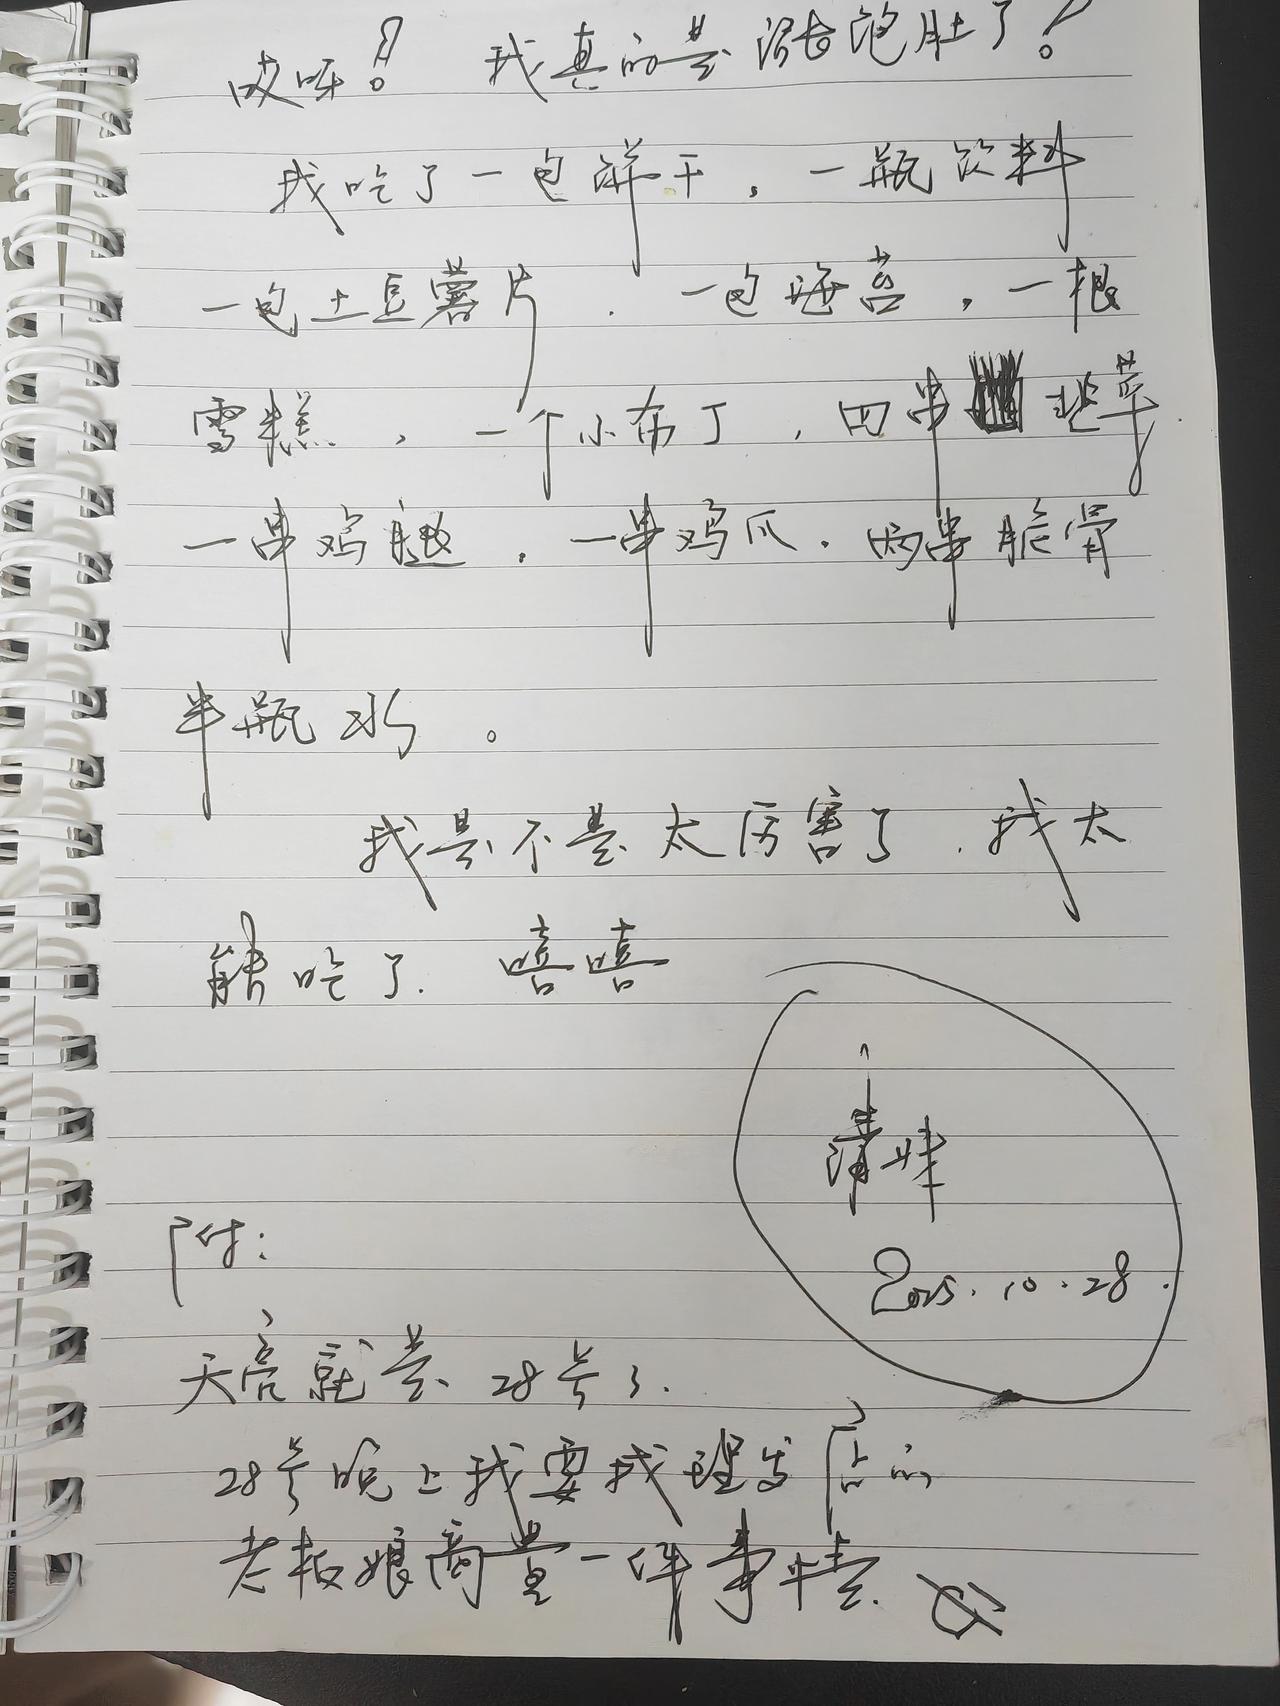 哎呀! 我真的是涨饱肚了!
我吃了一包饼干,一瓶饮料
一包土豆薯片.一包海苔,一根
雪糕,一个小布丁,四串韭菜
一串鸡腿,一串鸡爪.两串脆骨
半瓶水。
我是不是太厉害了.我太
能吃了.嘻嘻
清
2025.10.28.
附:
天亮就是28号了.
28号晚上我要找理发店的
老板娘商量一件事情.